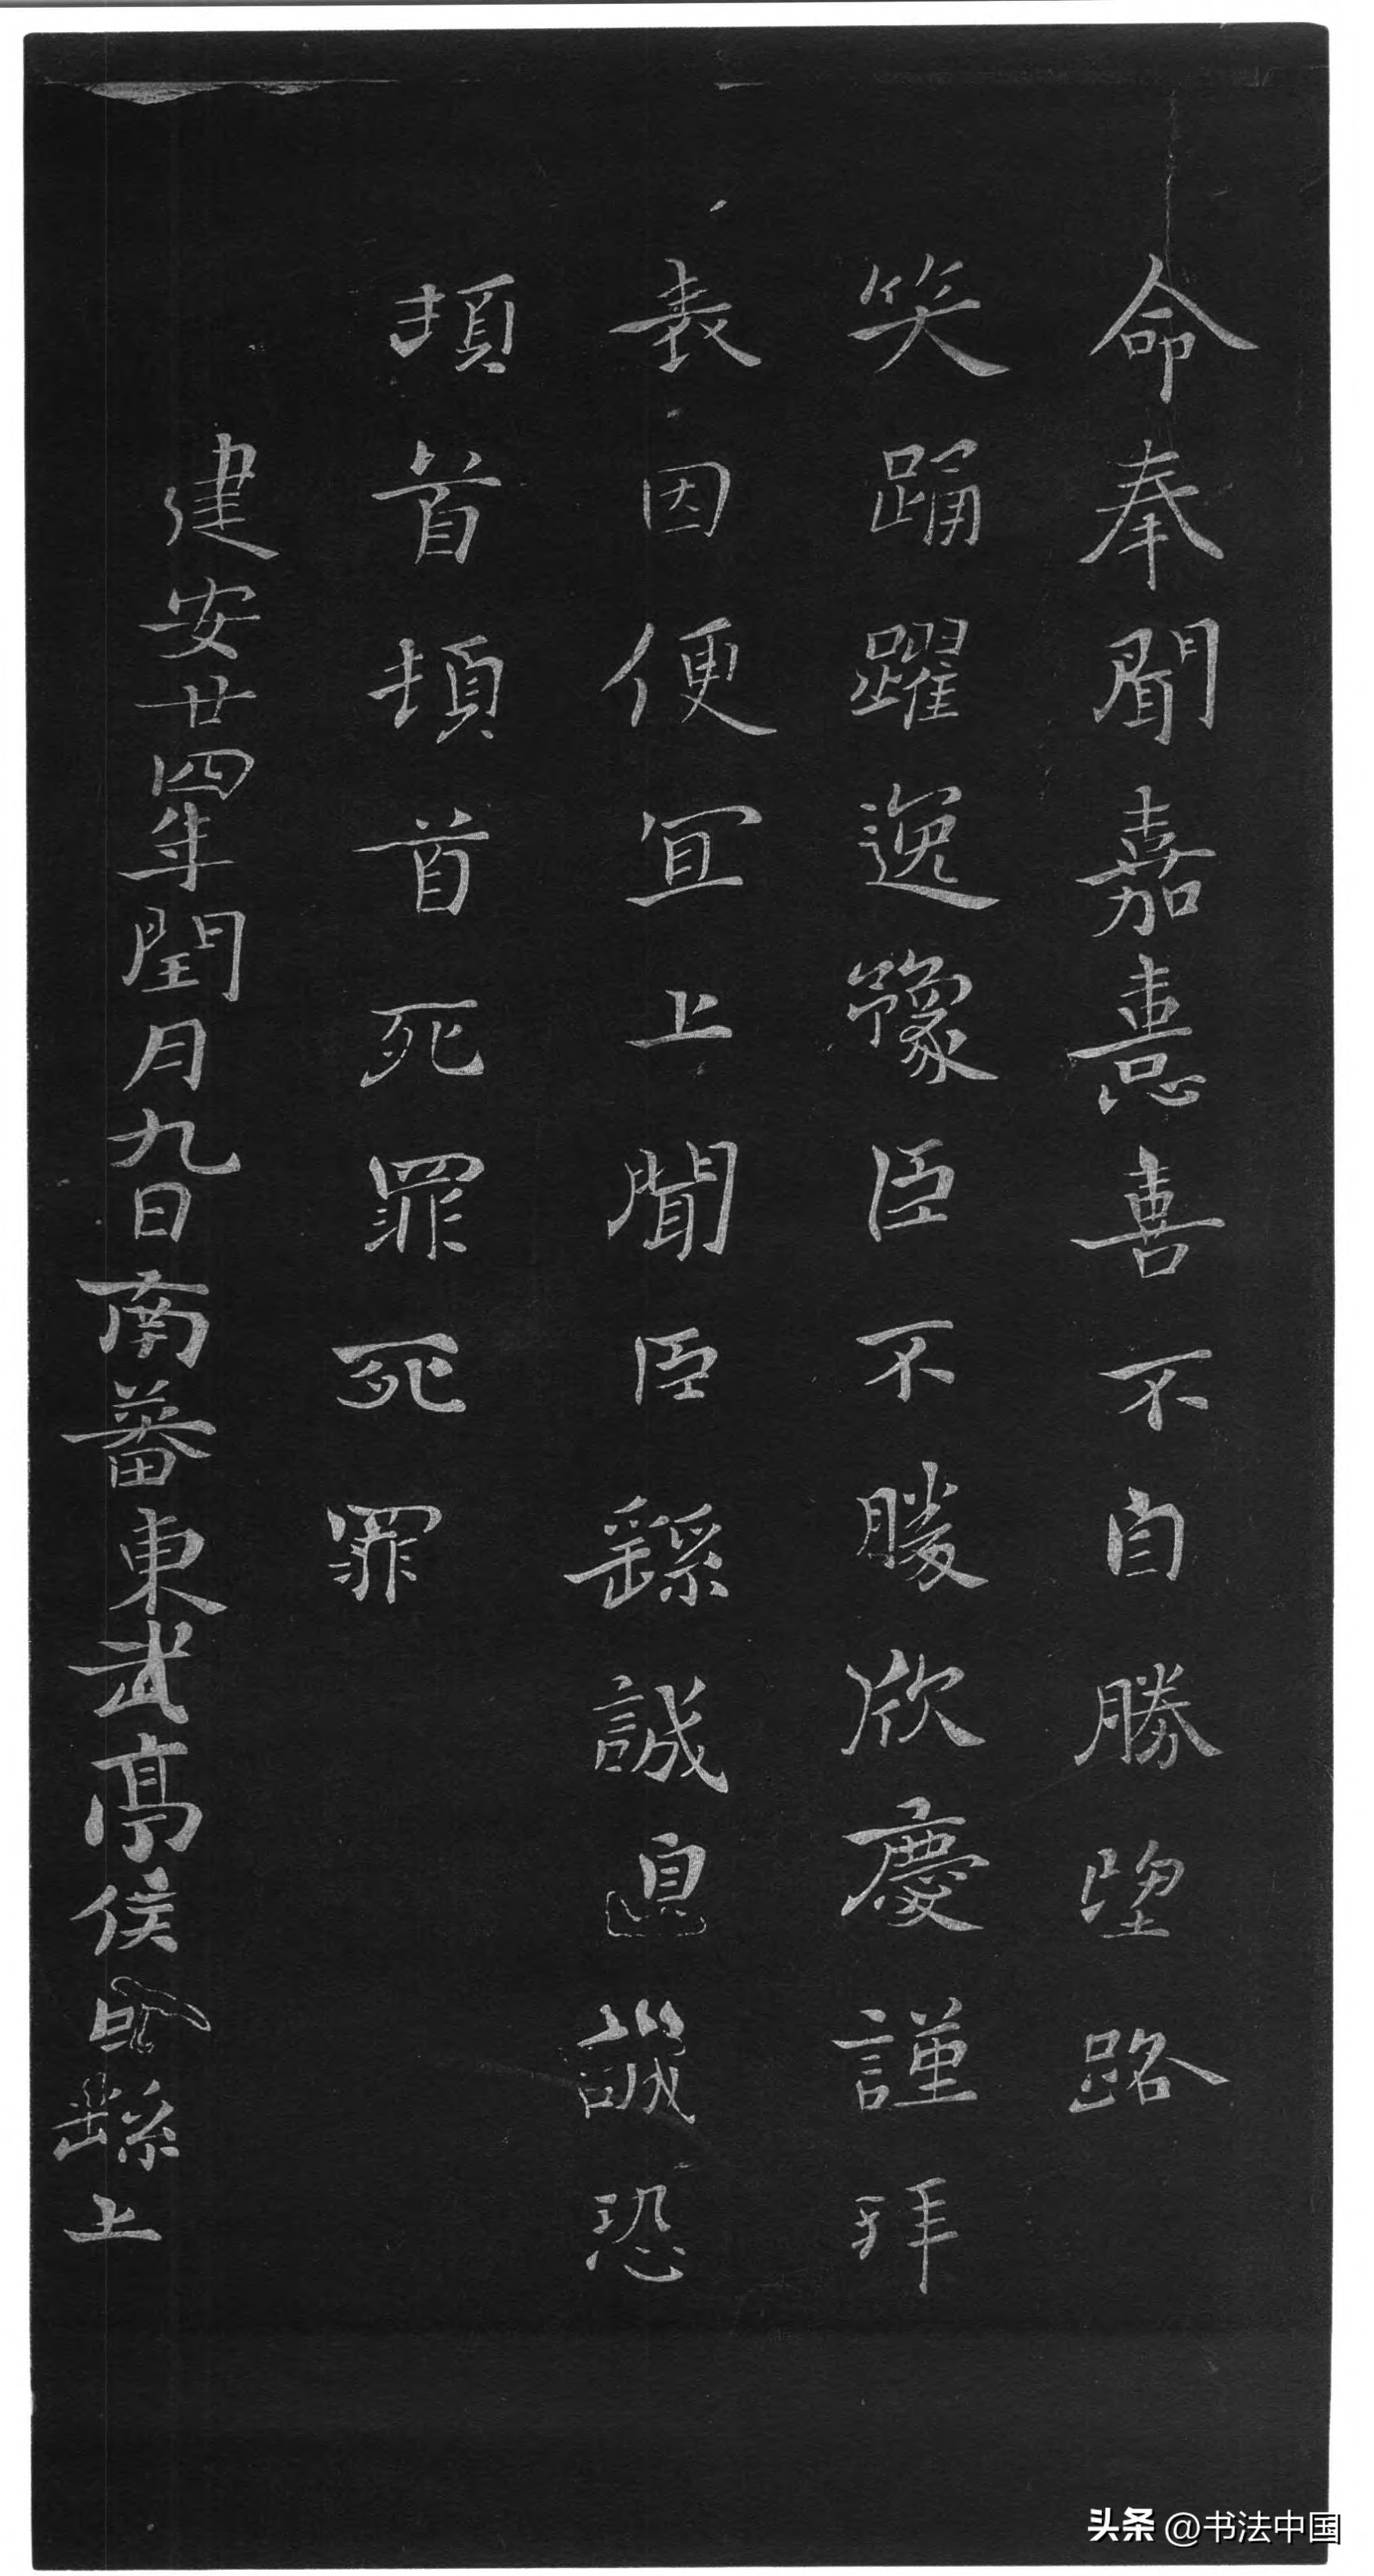 命奉聞嘉憙喜不自勝望路
笑踊躍逸豫臣不勝欣慶謹拜
表因便宜上聞臣繇誠誠恐
頓首頓首死罪死罪
建安廿四年閏月九日南蕃東武亭侯繇上
头条 @书法中国